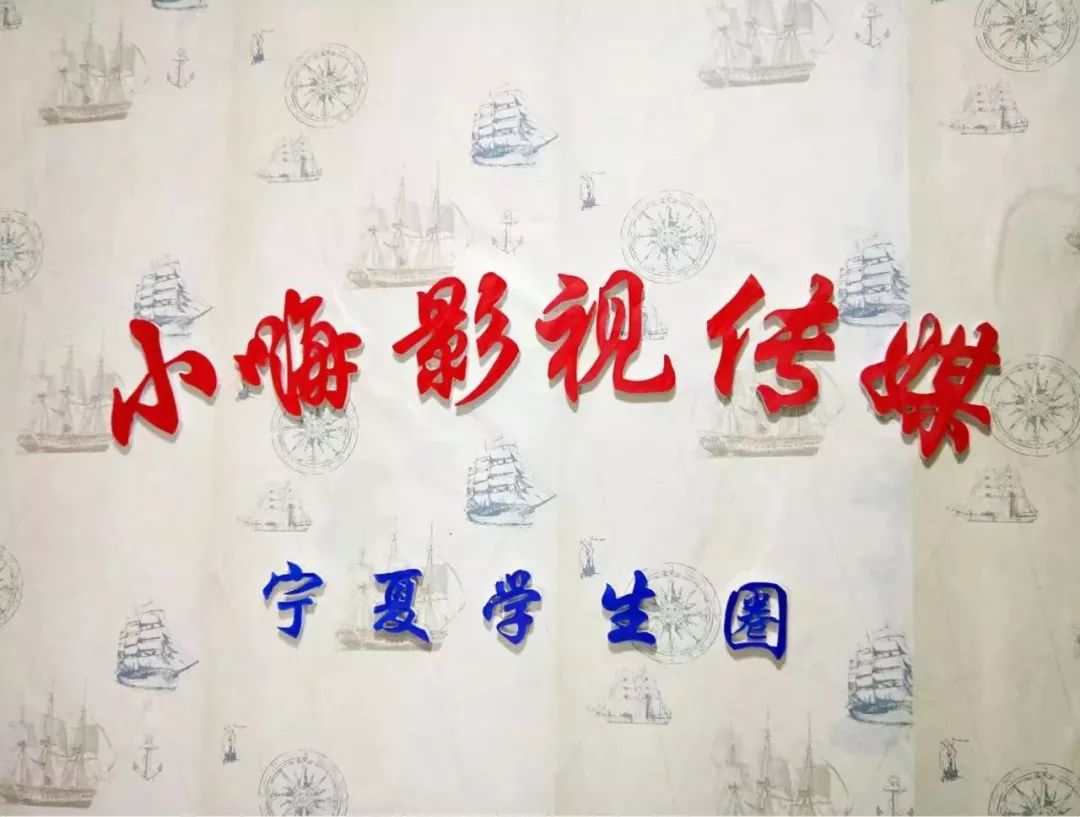 小嗨影视传媒
宁夏学生圈